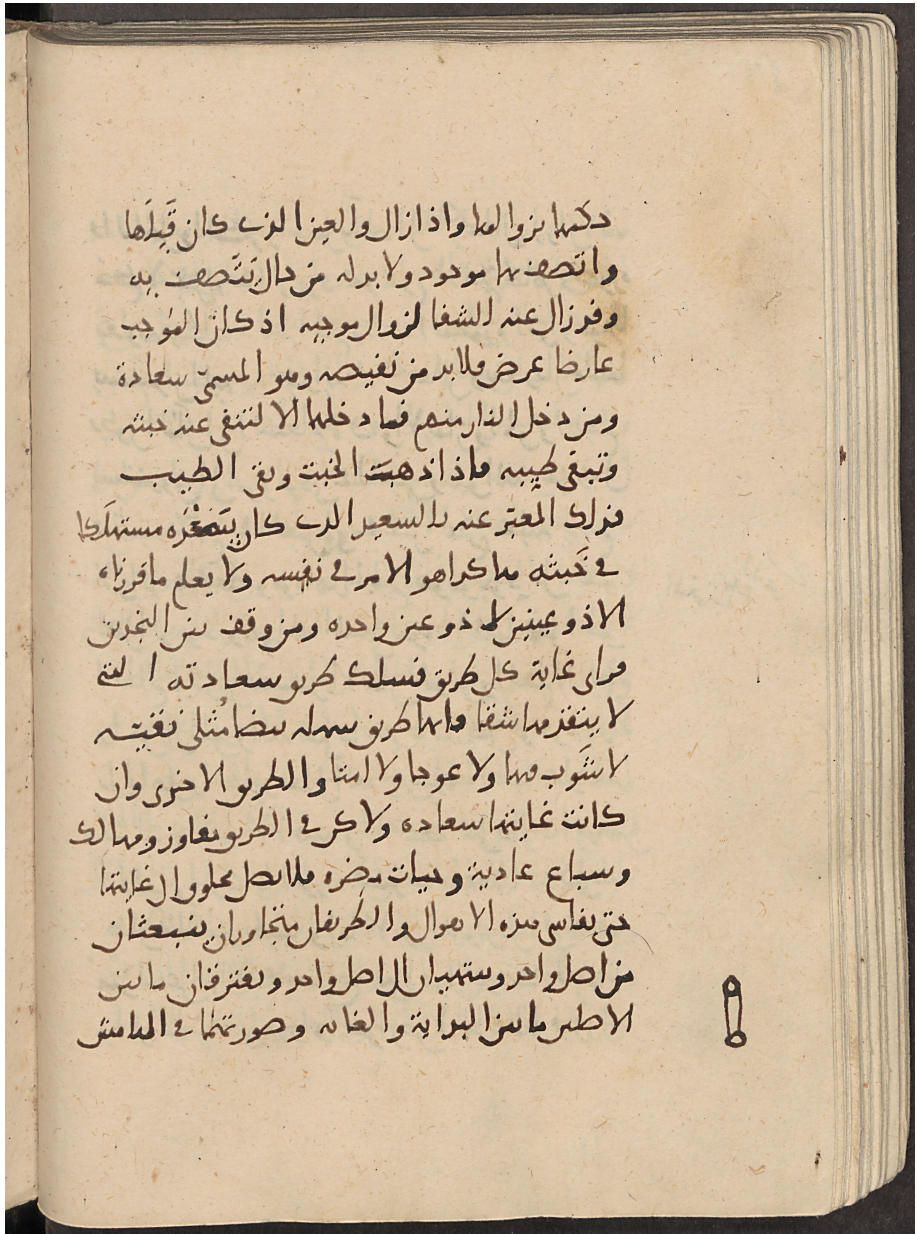 حكمها بزوالها واذا زال والعين الذي كان قَبِلَها
واتصف بها موجود ولا بد له من حال يَتَّصف به
وقد زال عنه الشقا لزوال موجبه اذ كان الموجب
عارضا عرض فلا بد من نقيضه وهو المسمىّ سعادة
ومن دخل النار منهم فما دخلها الا لتنفى عنه خبثه
وتبقى طيبه فاذا ذهب الخبث وبقى الطيب
فذلك المعبّر عنه بالسعيد الذي كان سَعْدُه مستهلَكا
في خَبثه هكذا هو الامر في نفسه ولا يعلم ما قررناه
الا ذو عينين لا ذو عين واحده ومن وقف بين النجدين
فراى غاية كل طريق فسلك طريق سعادته التي
لا يتقدمها شقا فانها طريق سهله بيضا مُثلى نقيّه
لا شَوب فيها ولا عوجا ولا امتا والطريق الاخرى وان
كانت غايتها سعاده ولاكن في الطريق مفاوز ومهالك
وسباع عادية وحيات مضره فلا يصل مخلوق الى غايتها
حتى يقاسى هذه الاهوال والطريقان متجاوران ينبعثان
من اصل واحد وينتهيان الى اصل واحد ويفترقان ما بين
الاصلين ما بين البداية والغايه وصورتهما في الهامش